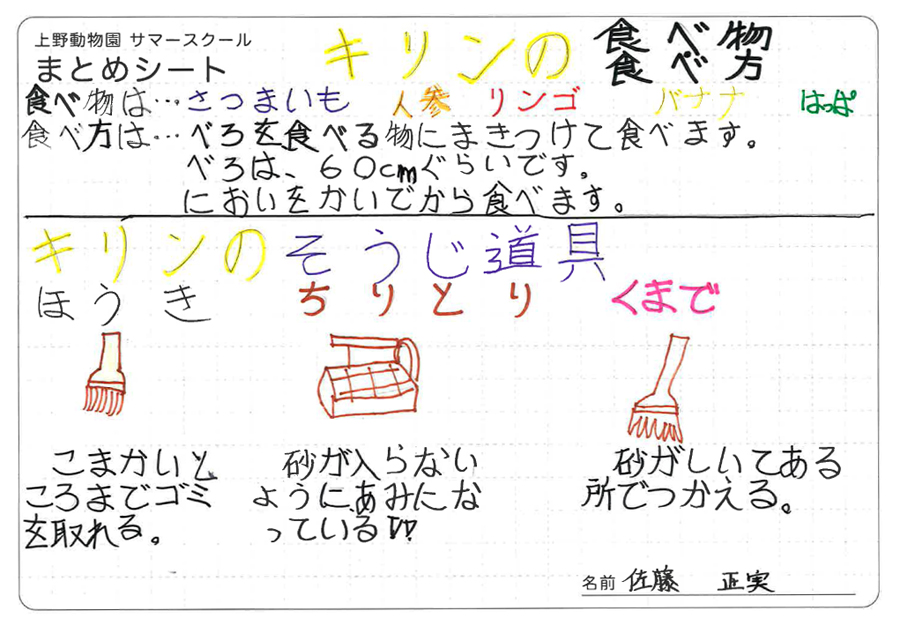 上野動物園 サマースクール
まとめシート
キリンの食べ物
食べ方
食べ物は…さつまいも 人参 リンゴ バナナ はっぱ
食べ方は…べろを食べる物にまきつけて食べます。
べろは、60cmぐらいです。
においをかいでから食べます。
キリンのそうじ道具
ほうき ちりとり くまで
こまかいと
ころまでゴミ
を取れる。
砂が入らない
ようにあみにな
っている!!
砂がしいてある
所でつかえる。
名前 佐藤 正実